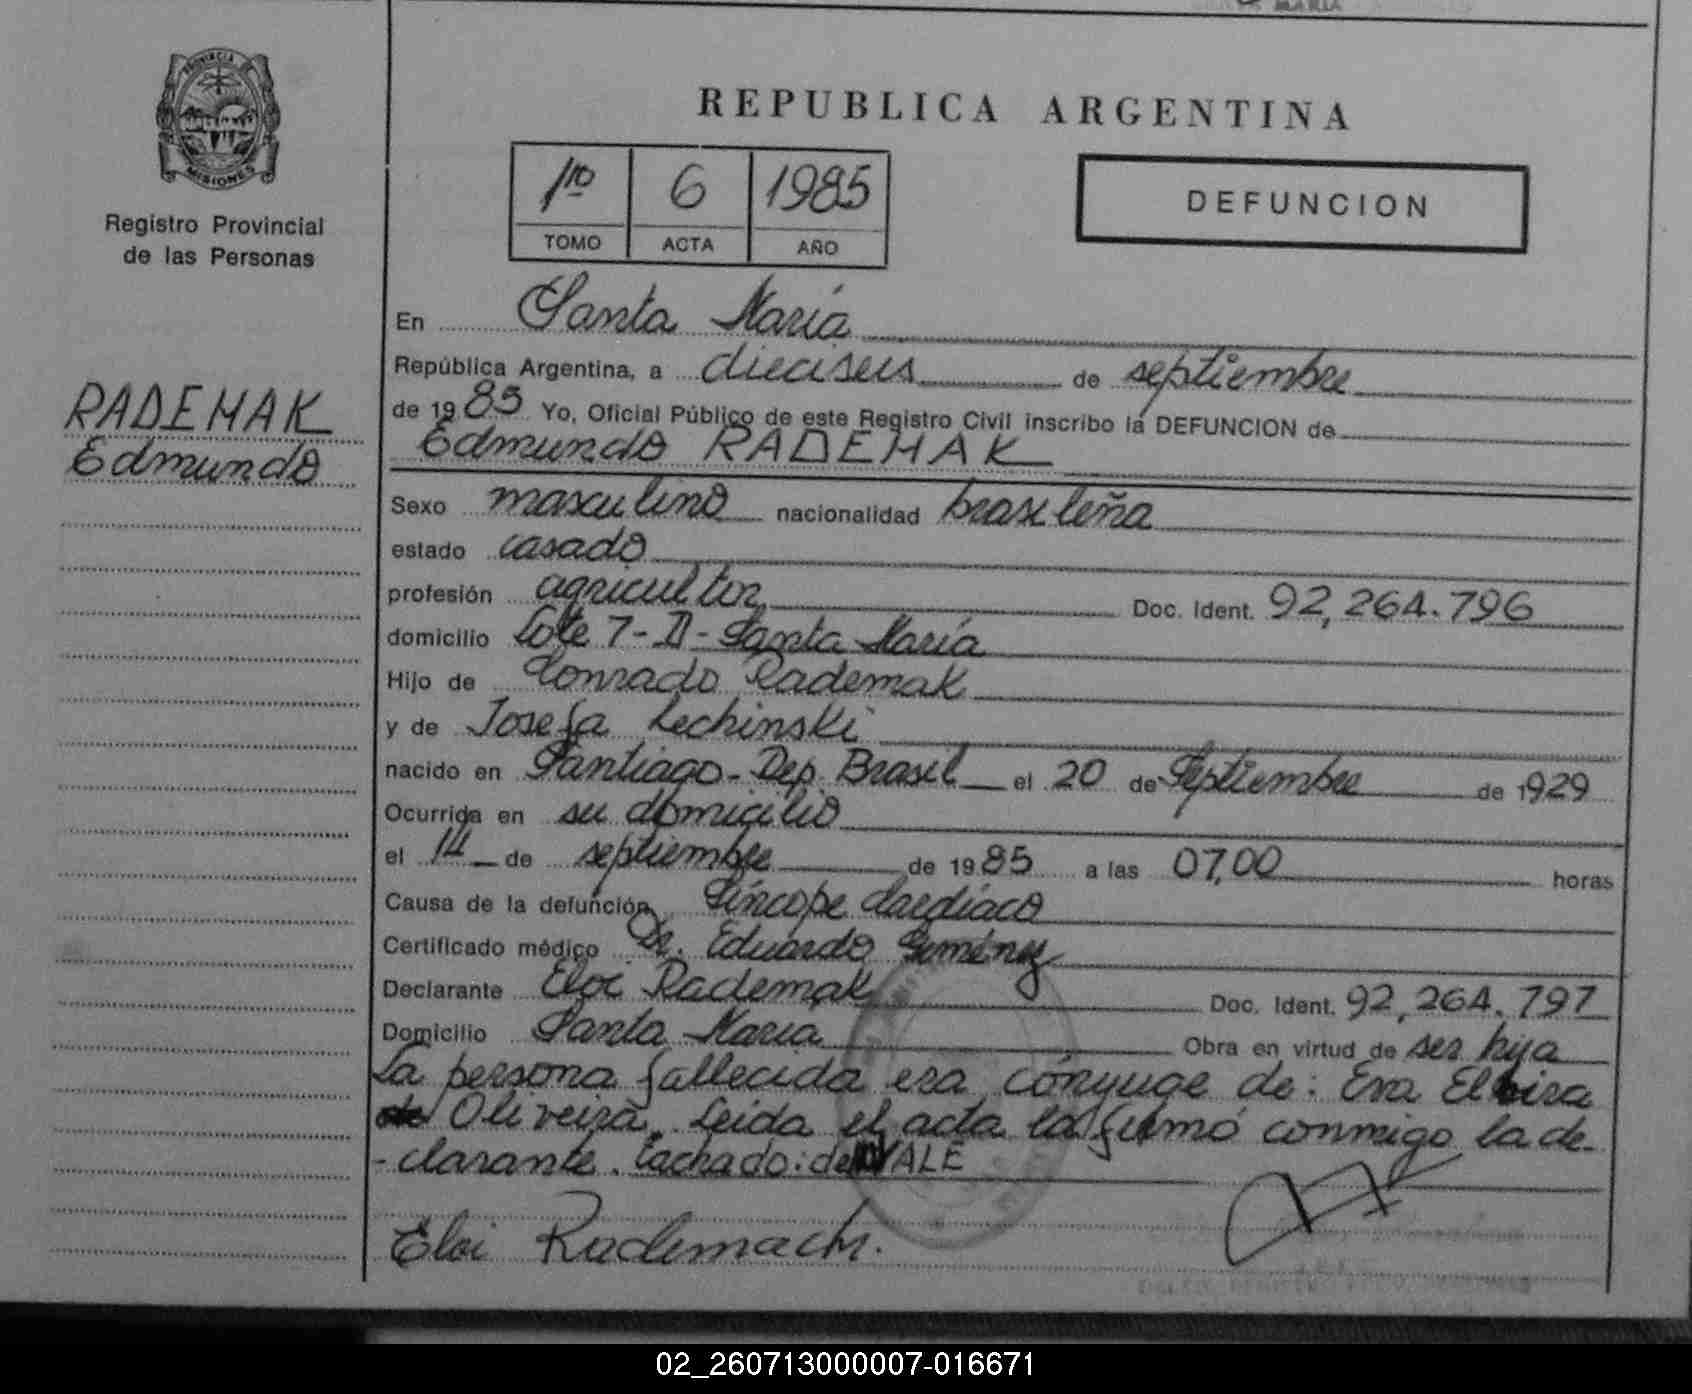 MARIA
PROVINCIA DE
MISIONES
Registro Provincial
de las Personas
RADEMAK
Edmundo
REPUBLICA ARGENTINA
1ro 6 1985
TOMO ACTA AÑO
DEFUNCION
En Santa María
República Argentina, a dieciseis de septiembre
de 1985 Yo, Oficial Público de este Registro Civil inscribo la DEFUNCION de
Edmundo RADEMAK
Sexo masculino nacionalidad brasileña
estado casado
profesión agricultor Doc. Ident. 92,264.796
domicilio Lote 7-D-Santa María
Hijo de Conrado Rademak
y de Josefa Lechinski
nacido en Santiago-Dep. Brasil el 20 de Septiembre de 1929
Ocurrida en su domicilio
el 14 de septiembre de 1985 a las 07,00 horas
Causa de la defunción Síncope Cardíaco
Certificado médico Dr. Eduardo Giménez
Declarante Eloi Rademak Doc. Ident. 92,264.797
Domicilio Santa María Obra en virtud de ser hija
La persona fallecida era cónyuge de: Eva Elvira
de Oliveira. Leida el acta la firmó conmigo la de-
-clarante. Tachado: de VALE
Eloi Rademach.
02_260713000007-016671